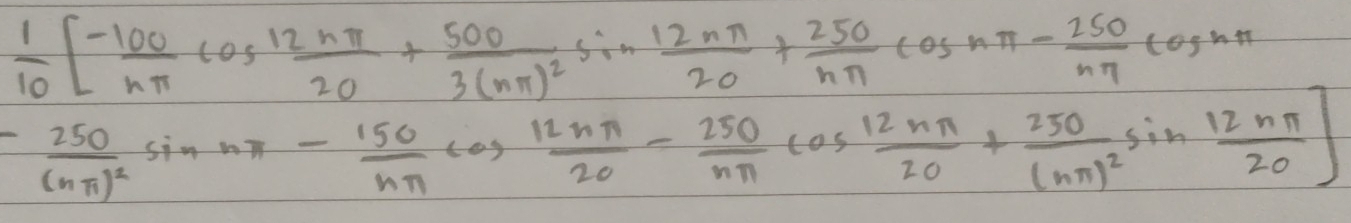 1/10 [ -100/nπ cos 12nπ/20 + 500/3(nπ)² sin 12nπ/20 + 250/nπ cos nπ - 250/nπ cos nπ
- 250/(nπ)² sin nπ - 150/nπ cos 12nπ/20 - 250/nπ cos 12nπ/20 + 250/(nπ)² sin 12nπ/20 ]